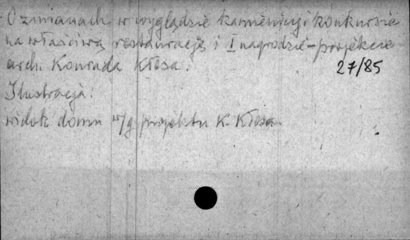 O zmianach w wyglądzie kamienicy i konkursie
na właściwą restaurację i I nagrodzie - projekcie
arch. Konrada Kłosa.
27/85
Ilustracja:
widok domu w/g projektu K. Kłosa